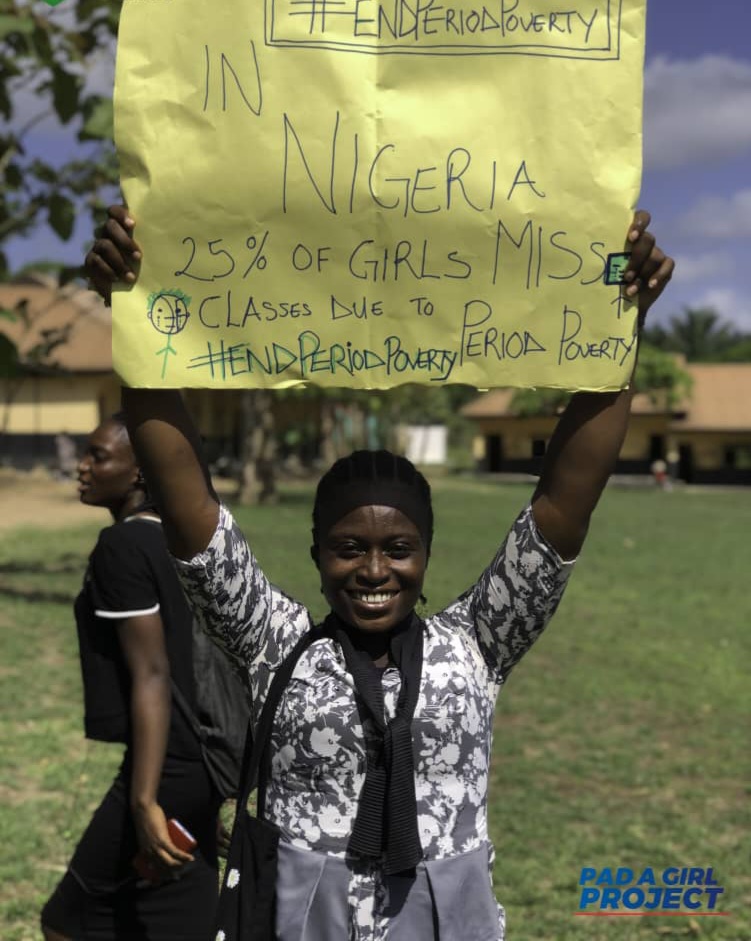 #ENDPERIODPOVERTY
IN
NIGERIA
25% OF GIRLS MISS
CLASSES DUE TO PERIOD POVERTY
#ENDPERIODPOVERTY
PAD A GIRL
PROJECT